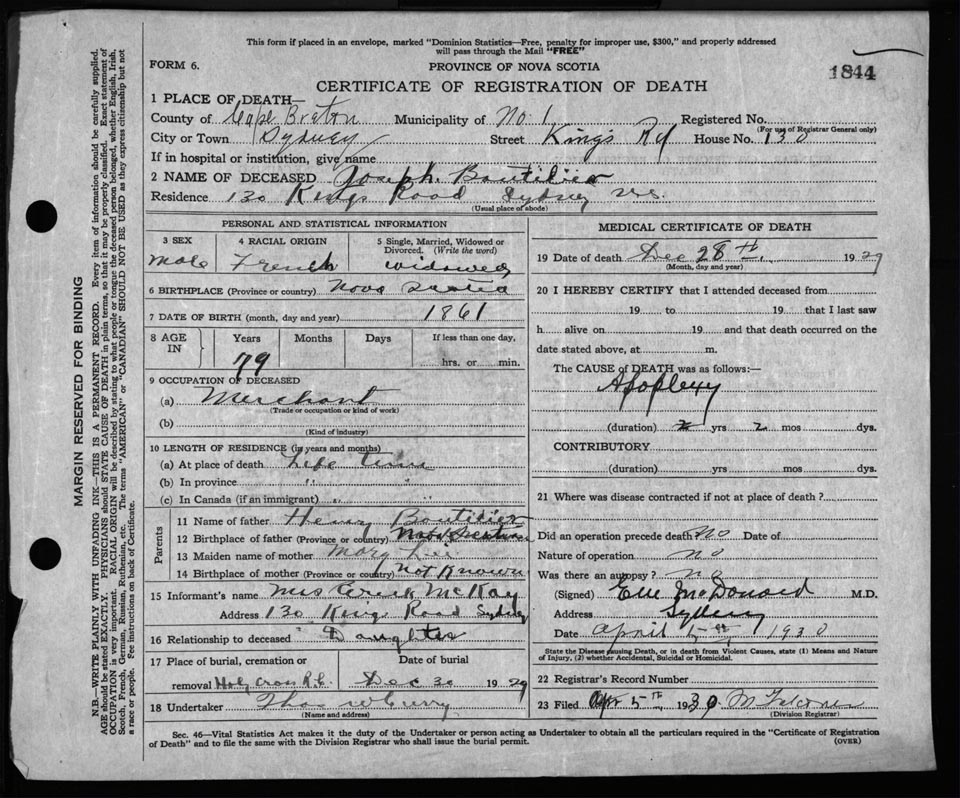 This form if placed in an envelope, marked "Dominion Statistics—Free, penalty for improper use, $300," and properly addressed
will pass through the Mail "FREE"
FORM 6.
PROVINCE OF NOVA SCOTIA
1844
CERTIFICATE OF REGISTRATION OF DEATH
1 PLACE OF DEATH—
County of Cape Breton Municipality of No. 1 Registered No.
(For use of Registrar General only)
City or Town Sydney Street Kings Rd House No. 130
If in hospital or institution, give name
2 NAME OF DECEASED Joseph Boutilier
Residence 130 Kings Road Sydney N.S.
(Usual place of abode)
PERSONAL AND STATISTICAL INFORMATION
3 SEX 4 RACIAL ORIGIN 5 Single, Married, Widowed or
Divorced. (Write the word)
Male French widowed
6 BIRTHPLACE (Province or country) Nova Scotia
7 DATE OF BIRTH (month, day and year) 1861
8 AGE IN Years Months Days If less than one day,
79 hrs. or min.
9 OCCUPATION OF DECEASED
(a) Merchant
(Trade or occupation or kind of work)
(b)
(Kind of industry)
10 LENGTH OF RESIDENCE (in years and months)
(a) At place of death Life time
(b) In province " "
(c) In Canada (if an immigrant) " "
Parents
11 Name of father Henry Boutilier
12 Birthplace of father (Province or country) Nova Scotia
13 Maiden name of mother Mary Lee
14 Birthplace of mother (Province or country) Not Known
15 Informant's name Mrs McKay
Address 130 Kings Road Sydney
16 Relationship to deceased Daughter
17 Place of burial, cremation or Date of burial
removal Holy Cross R.C. Dec 30 1929
18 Undertaker Thos W Curry
(Name and address)
MEDICAL CERTIFICATE OF DEATH
19 Date of death Dec 28th 1929
(Month, day and year)
20 I HEREBY CERTIFY that I attended deceased from
19 to 19 that I last saw
h alive on 19 and that death occurred on the
date stated above, at m.
The CAUSE of DEATH was as follows:—
Apoplexy
(duration) yrs 2 mos dys.
CONTRIBUTORY
(duration) yrs. mos dys.
21 Where was disease contracted if not at place of death?
Did an operation precede death No Date of
Nature of operation no
Was there an autopsy? no
(Signed) McDonald M.D.
Address Sydney
Date April 5th 1930
State the Disease causing Death, or in death from Violent Causes, state (1) Means and Nature
of Injury, (2) whether Accidental, Suicidal or Homicidal.
22 Registrar's Record Number
23 Filed Apr 5th 1930 M Falconer
(Division Registrar)
Sec. 46—Vital Statistics Act makes it the duty of the Undertaker or person acting as Undertaker to obtain all the particulars required in the "Certificate of Registration
of Death" and to file the same with the Division Registrar who shall issue the burial permit.
(OVER)
MARGIN RESERVED FOR BINDING
N.B.—WRITE PLAINLY WITH UNFADING INK—THIS IS A PERMANENT RECORD. Every item of information should be carefully supplied.
AGE should be stated EXACTLY. PHYSICIANS should STATE CAUSE OF DEATH in plain terms, so that it may be properly classified. Exact statement of
OCCUPATION is very important. RACIAL ORIGIN will be described by stating to what people or tongue the deceased person belonged, whether English, Irish,
Scotch, French, German, Russian, Ruthenian, etc. The terms "AMERICAN" or "CANADIAN" SHOULD NOT BE USED as they express citizenship but not
a race or people. See instructions on back of Certificate.